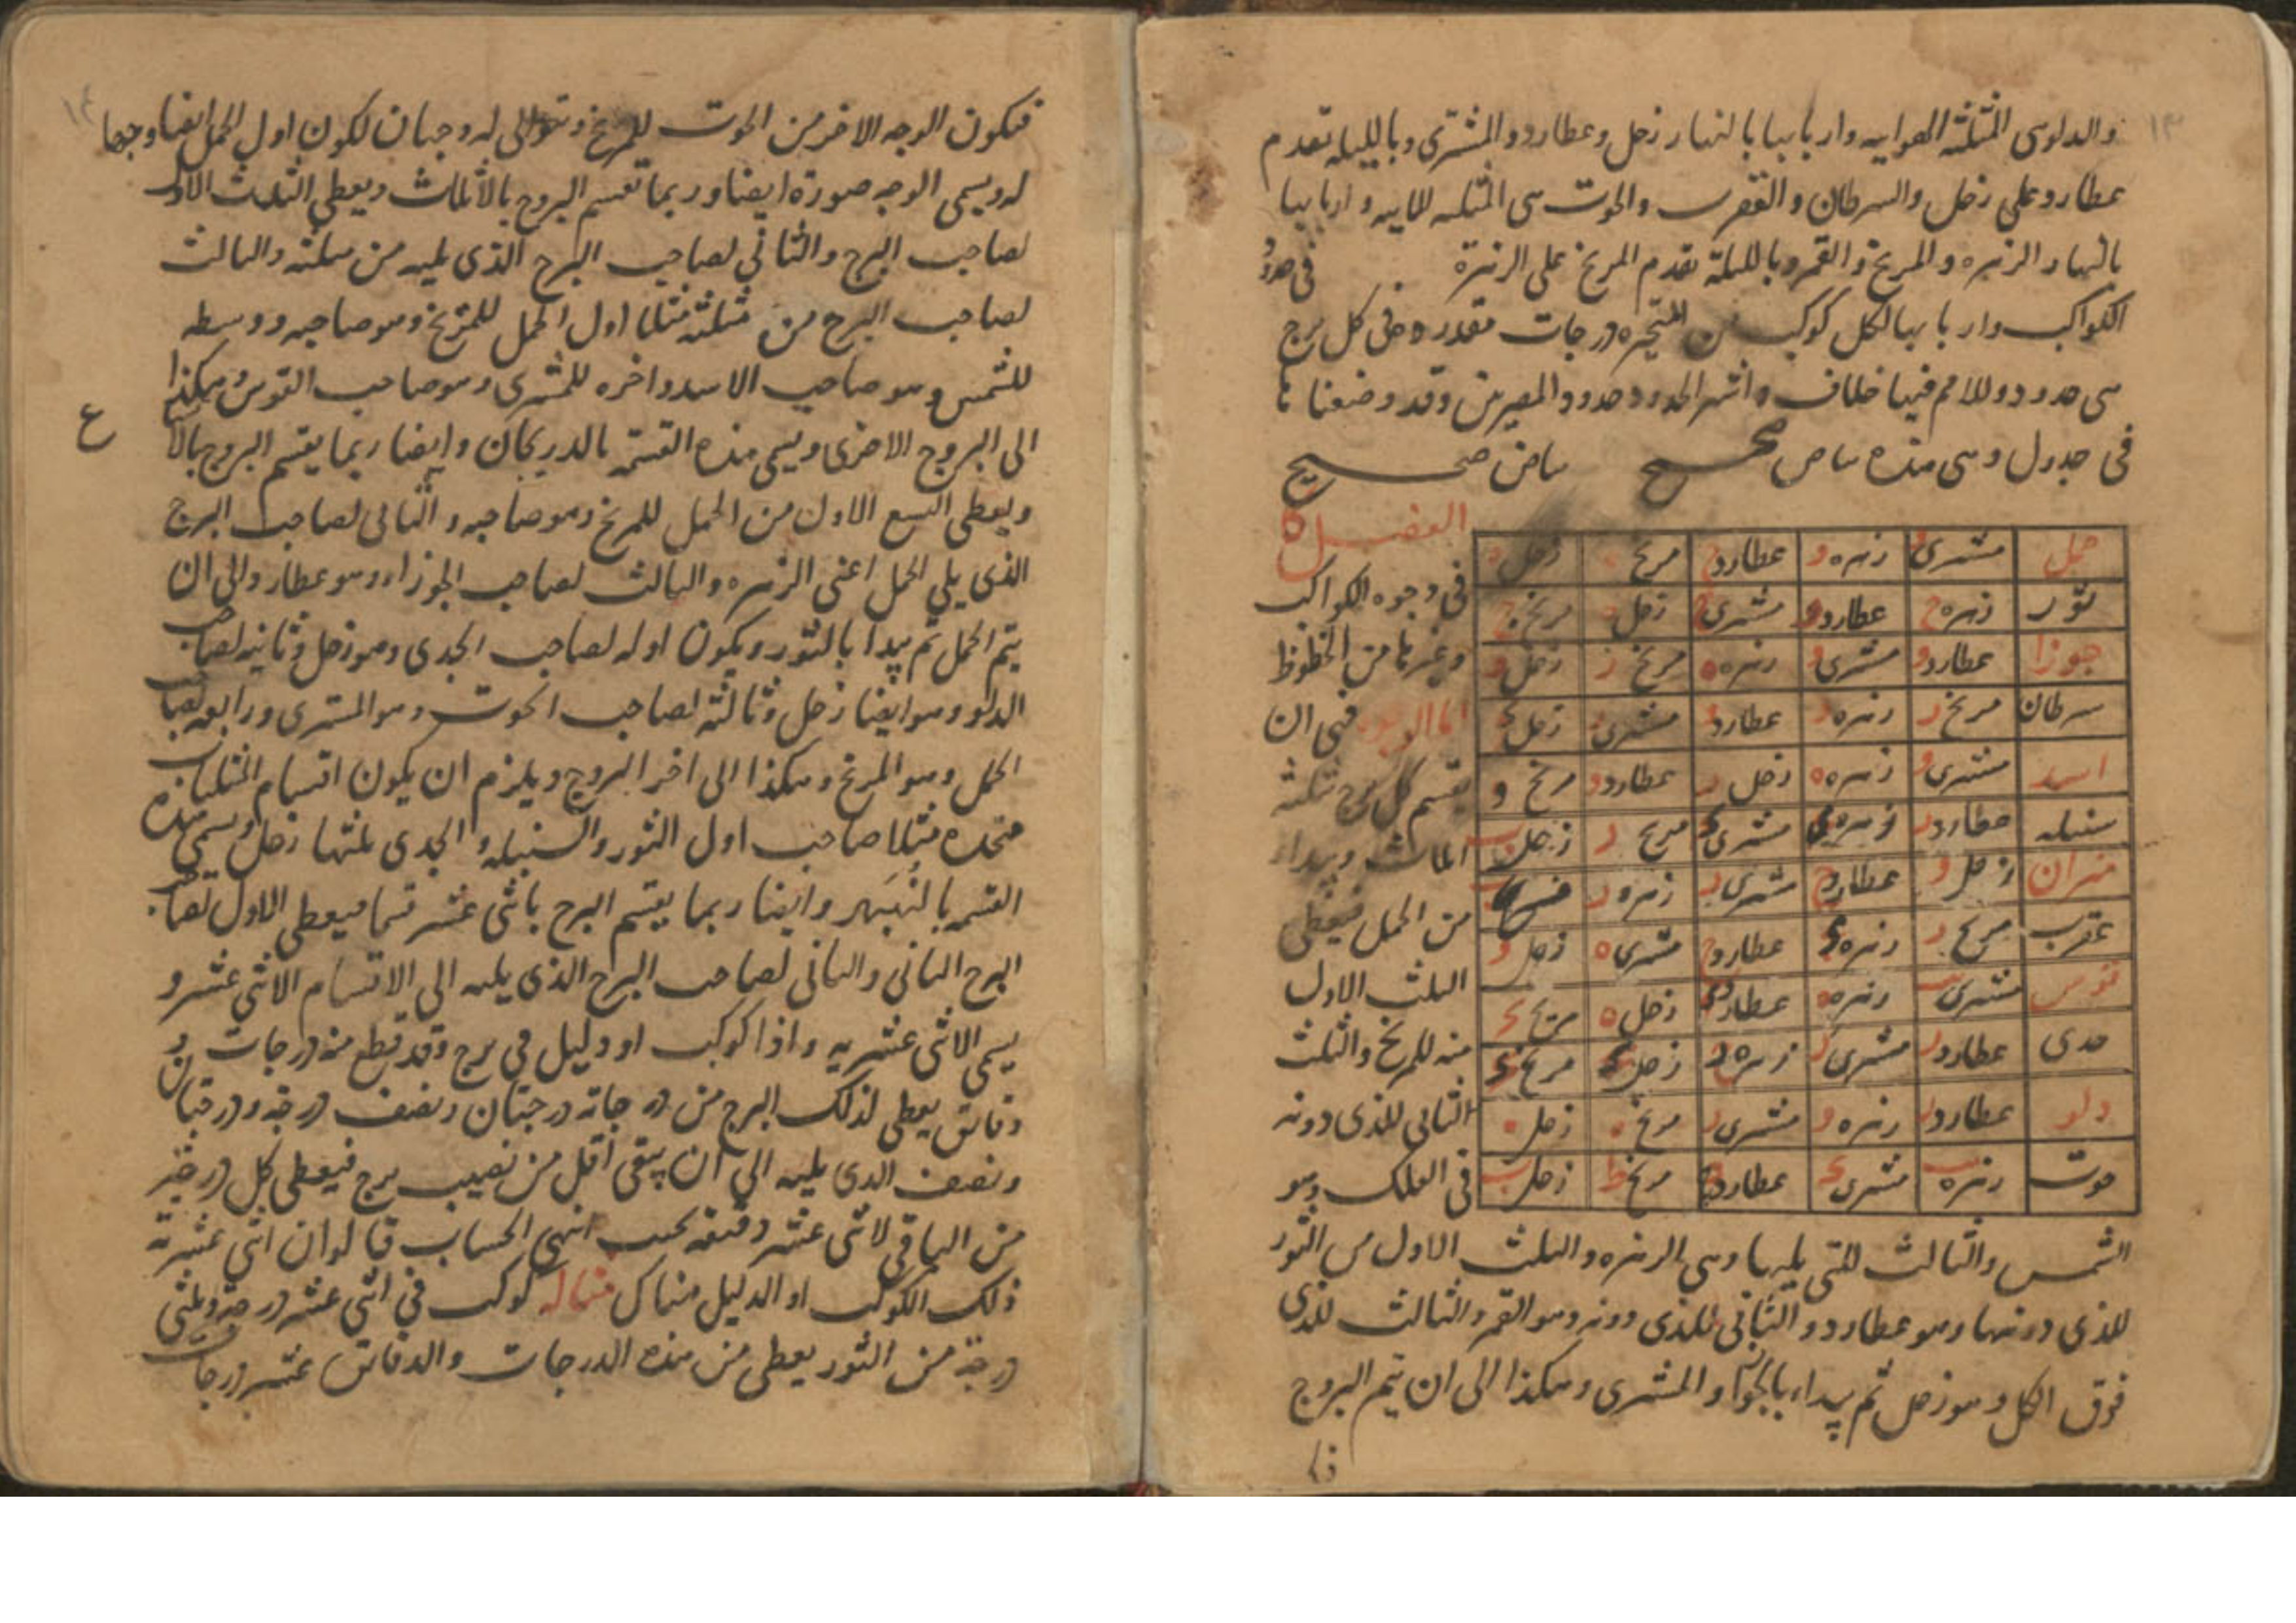 ١٣
والدلو هى المثلثه الهوائيه واربابها بالنهار زحل وعطارد والمشترى وبالليل تقدم
عطارد على زحل والسرطان والعقرب والحوت هى المثلثه المائيه واربابها
بالنهار الزهره والمريخ والقمر وبالليله تقدم المريخ على الزهرة فى حدود
الكواكب واربابها لكل كوكب من المتحيره درجات مقدره فى كل برج
هى حدوده وللامم فيها خلاف واشهر الحدود حدود المصريين وقد وضعناها
فى جدول وهى هذه بياض صحيح بياض صحيح
الفصل ٥
حمل مشترى و زهره و عطارد ح مريخ ه زحل ه
ثور زهره ح عطارد و مشترى ح زحل ه مريخ ج
جوزا عطارد و مشترى و زهره ه مريخ ز زحل و
سرطان مريخ ز زهره و عطارد و مشترى ز زحل د
اسد مشترى و زهره ه زحل ز عطارد و مريخ و
سنبله عطارد ز زهره ى مشترى د مريخ ز زحل ب
ميزان زحل و عطارد ح مشترى ز زهره ز مريخ ب
عقرب مريخ ز زهره د عطارد ح مشترى ه زحل و
قوس مشترى يب زهره ه عطارد د زحل ه مريخ د
جدى عطارد ز مشترى ز زهره ح زحل د مريخ د
دلو عطارد ز زهره و مشترى ز مريخ ه زحل ه
حوت زهره يب مشترى د عطارد ج مريخ ط زحل ب
فى وجوه الكواكب
وغيرها من الحظوظ
اما الوجوه فهى ان
يقسم كل برج بثلثة
اثلاث ويبداء
من الحمل فيعطى
الثلث الاول
منه للمريخ والثلث
الثانى للذى دونه
فى الفلك وهو
الشمس والثالث للتى يليها وهى الزهره والثلث الاول من الثور
للذى دونها وهو عطارد والثانى للذى دونه وهو القمر والثالث للذى
فوق الكل وهو زحل ثم يبداء بالجوزا والمشترى وهكذا الى ان يتم البروج
١٤
فيكون الوجه الاخر من الحوت للمريخ وتتوالى له وجهان لكون اول الحمل ايضا وجها
له ويسمى الوجه صورة ايضا وربما تقسم البروج بالاثلاث ويعطى الثلث الاول
لصاحب البرج والثانى لصاحب البرج الذى يليه من مثلثه والثالث
لصاحب البرج من مثلثه مثلا اول الحمل للمريخ وهو صاحبه ووسطه
للشمس وهو صاحب الاسد واخره للمشترى وهو صاحب القوس وهكذا
ع
الى البروج الاخرى ويسمى هذه القسمة بالدريجان وايضا ربما يقسم البروج بالا
ويعطى التسع الاول من الحمل للمريخ وهو صاحبه والثانى لصاحب البرج
الذى يلى الحمل اعنى الزهره والثالث لصاحب الجوزاء وهو عطارد والى ان
يتم الحمل ثم يبدا بالثور ويكون اوله لصاحب الجدى وهو زحل وثانيه لصاحب
الدلو وهو ايضا زحل وثالثه لصاحب الحوت وهو المشترى ورابعه لصاحب
الحمل وهو المريخ وهكذا الى اخر البروج ويلزم ان يكون اقسام المثلثات
متحده مثلا صاحب اول الثور والسنبله والجدى يلثها زحل ويسمى هذه
القسمه بالنهبهر وايضا ربما يقسم البرج باثنى عشر قسما فيعطى الاول لصاحب
البرج الثانى والثانى لصاحب البرج الذى يليه الى الاقسام الاثنى عشر و
يسمى الاثنى عشريه واذا كوكب او دليل فى برج وقد قطع منه درجات و
دقايق يعطى لذلك البرج من درجاته درجتان ونصف درجة ودرجتان
ونصف الذى يليه الى ان يبقى اقل من نصيب برج فيعطى كل درجة
من الباقى لاثنى عشر دقيقه بحيث انتهى الحساب قالوا ان اثنى عشرية
ذلك الكوكب او الدليل هناك مثاله كوكب فى اثنى عشر درجة وثلثى
درجة من الثور يعطى من هذه الدرجات والدقايق عشر درجات